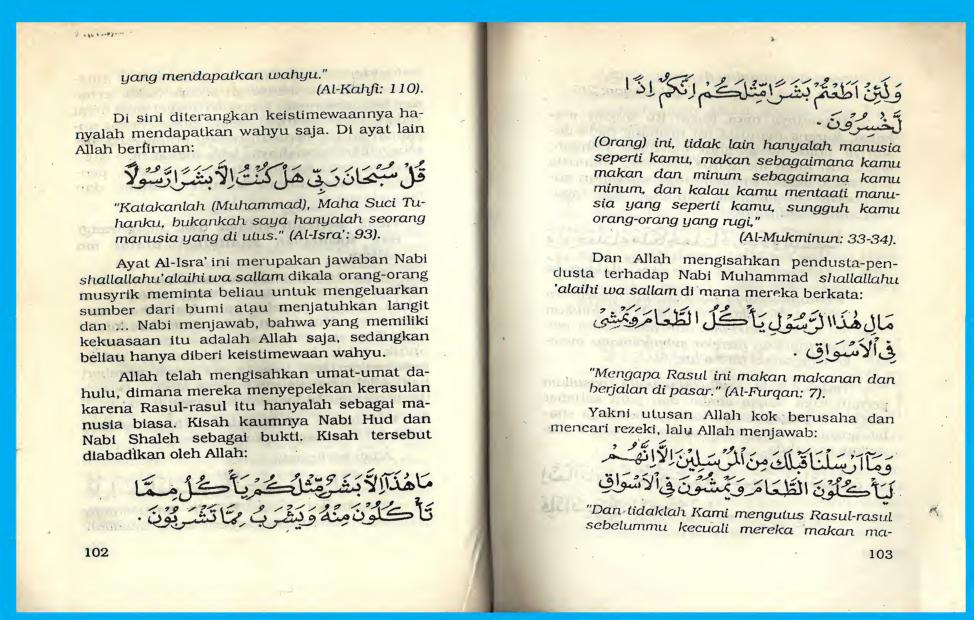 yang mendapatkan wahyu."
(Al-Kahfi: 110).
Di sini diterangkan keistimewaannya ha-
nyalah mendapatkan wahyu saja. Di ayat lain
Allah berfirman:
قُلْ سُبْحَانَ رَبِّي هَلْ كُنْتُ اِلاَّ بَشَرًا رَّسُوْلاً
"Katakanlah (Muhammad), Maha Suci Tu-
hanku, bukankah saya hanyalah seorang
manusia yang di utus." (Al-Isra': 93).
Ayat Al-Isra' ini merupakan jawaban Nabi
shallallahu'alaihi wa sallam dikala orang-orang
musyrik meminta beliau untuk mengeluarkan
sumber dari bumi atau menjatuhkan langit
dan ... Nabi menjawab, bahwa yang memiliki
kekuasaan itu adalah Allah saja, sedangkan
beliau hanya diberi keistimewaan wahyu.
Allah telah mengisahkan umat-umat da-
hulu, dimana mereka menyepelekan kerasulan
karena Rasul-rasul itu hanyalah sebagai ma-
nusia biasa. Kisah kaumnya Nabi Hud dan
Nabi Shaleh sebagai bukti. Kisah tersebut
diabadikan oleh Allah:
مَا هٰذَآ اِلاَّ بَشَرٌ مِّثْلُكُمْ يَأْكُلُ مِمَّا
تَأْكُلُوْنَ مِنْهُ وَيَشْرَبُ مِمَّا تَشْرَبُوْنَ .
102
وَلَئِنْ اَطَعْتُمْ بَشَرًا مِّثْلَكُمْ اِنَّكُمْ اِذًا
لَّخٰسِرُوْنَ .
(Orang) ini, tidak lain hanyalah manusia
seperti kamu, makan sebagaimana kamu
makan dan minum sebagaimana kamu
minum, dan kalau kamu mentaati manu-
sia yang seperti kamu, sungguh kamu
orang-orang yang rugi,"
(Al-Mukminun: 33-34).
Dan Allah mengisahkan pendusta-pen-
dusta terhadap Nabi Muhammad shallallahu
'alaihi wa sallam di mana mereka berkata:
مَالِ هٰذَا الرَّسُوْلِ يَأْكُلُ الطَّعَامَ وَيَمْشِىْ
فِى الْاَسْوَاقِ .
"Mengapa Rasul ini makan makanan dan
berjalan di pasar." (Al-Furqan: 7).
Yakni utusan Allah kok berusaha dan
mencari rezeki, lalu Allah menjawab:
وَمَآ اَرْسَلْنَا قَبْلَكَ مِنَ الْمُرْسَلِيْنَ اِلاَّ اِنَّهُمْ
لَيَأْكُلُوْنَ الطَّعَامَ وَيَمْشُوْنَ فِى الْاَسْوَاقِ
"Dan tidaklah Kami mengutus Rasul-rasul
sebelummu kecuali mereka makan ma-
103